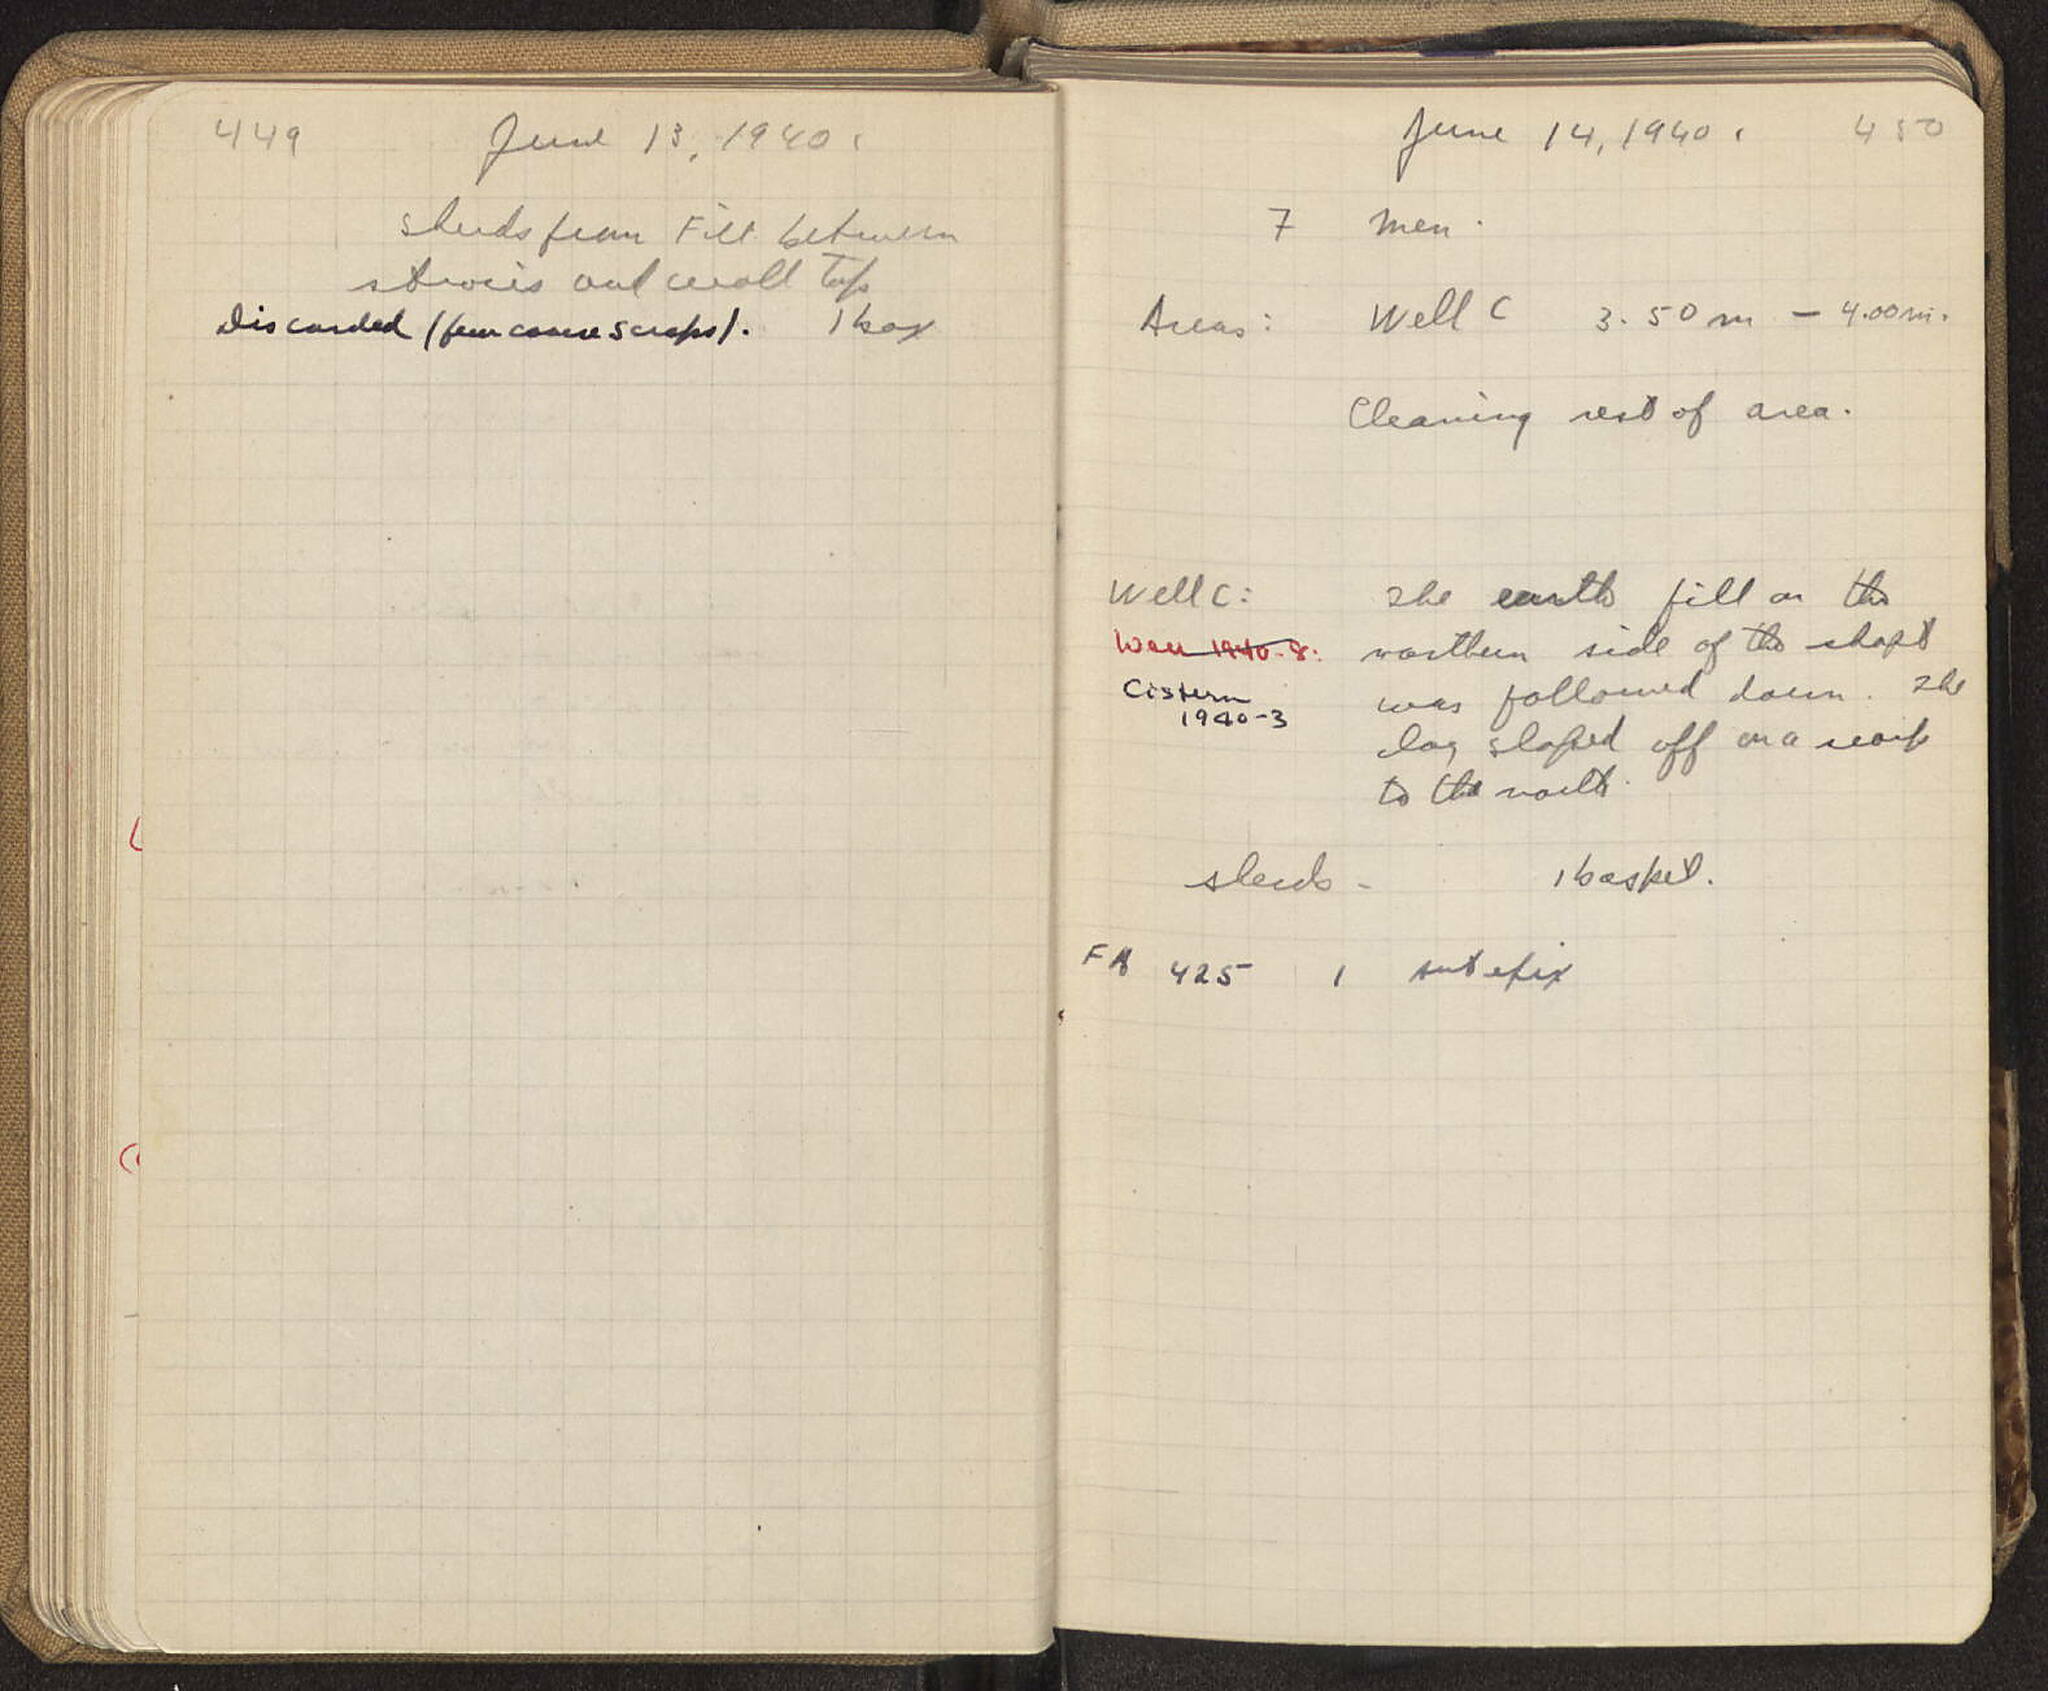 449 June 13, 1940.
sherds from Fill between
strosis and wall top
Discarded (few coarse scraps). 1 box
June 14, 1940. 450
7 men.
Areas: Well C 3.50 m - 4.00 m.
Cleaning rest of area.
Well C: The earth fill on the
Well 1940-8: northern side of the shaft
Cistern was followed down. The
1940-3
clay sloped off on a scarp
to the north.
sherds - 1 basket.
425 1 antefix